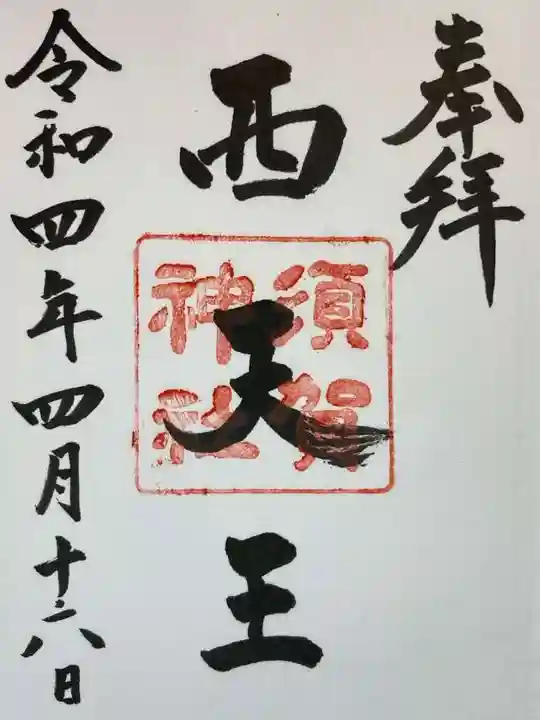 奉拝
西天王
須賀
神社
令和四年四月十六日